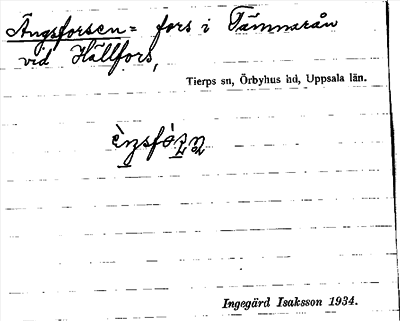 Ängsforsen = fors i Tämnarån
vid Hällfors,
Tierps sn, Örbyhus hd, Uppsala län.
Ingegärd Isaksson 1934.